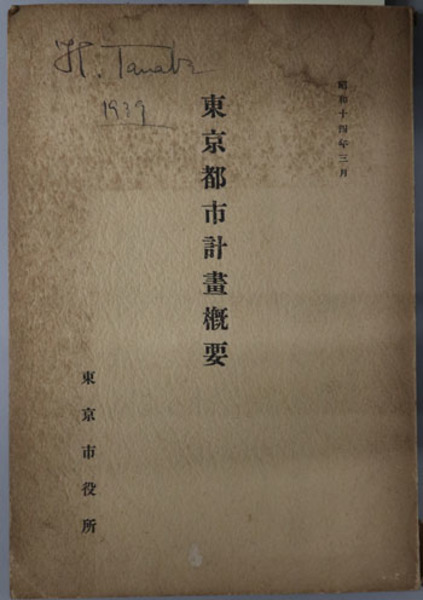 昭和十四年三月
東京都市計畫槪要
東京市役所
H. Tanabe
1939